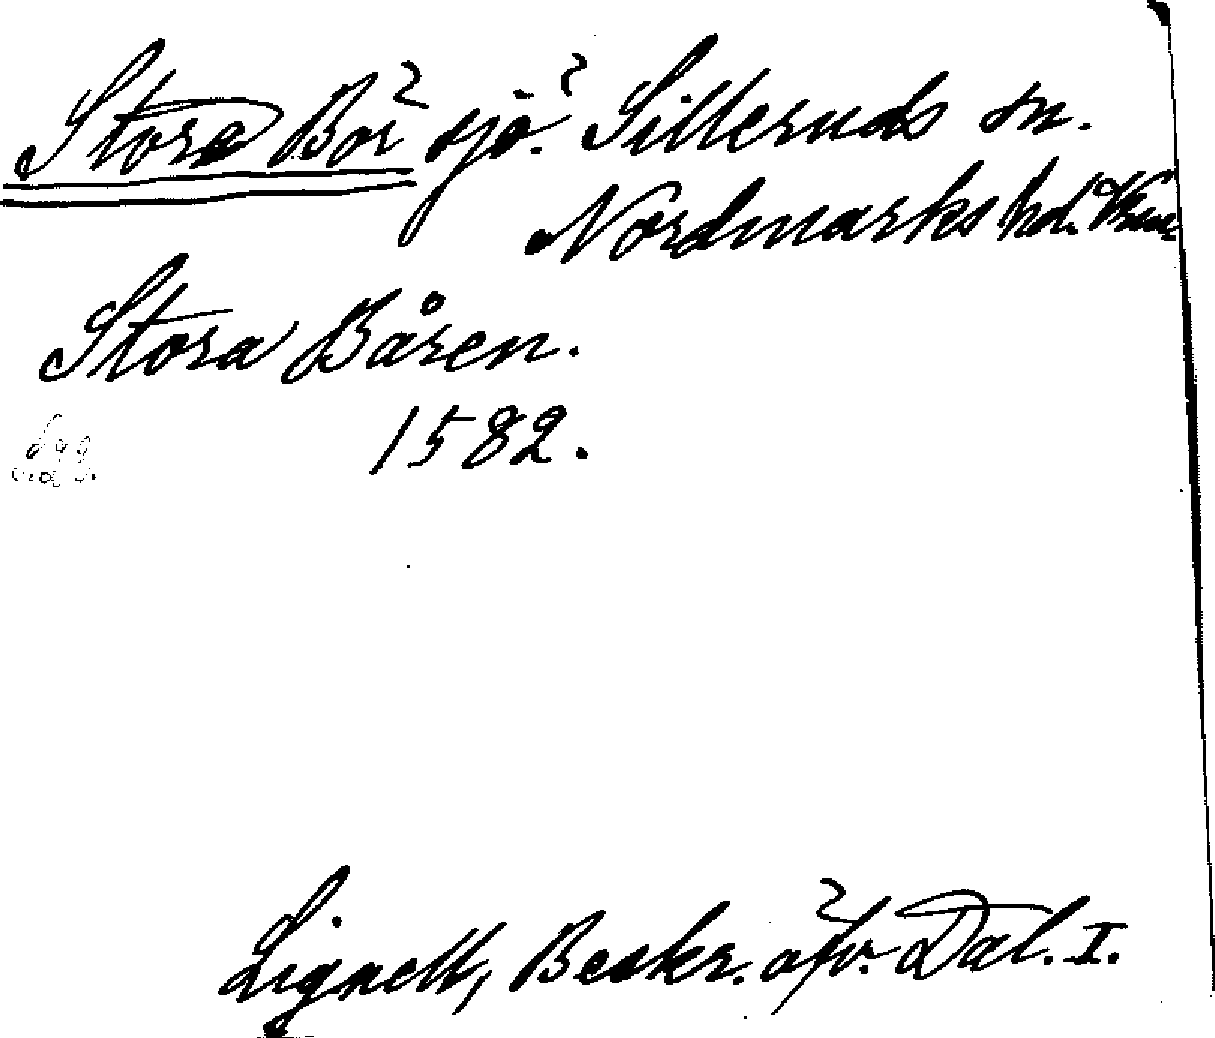 Stora Bör sjö. Silleruds sn.
Nordmarks hd. Vrm
Stora Båren.
1582.
Lignell, Beskr. öfv. Dal. I.